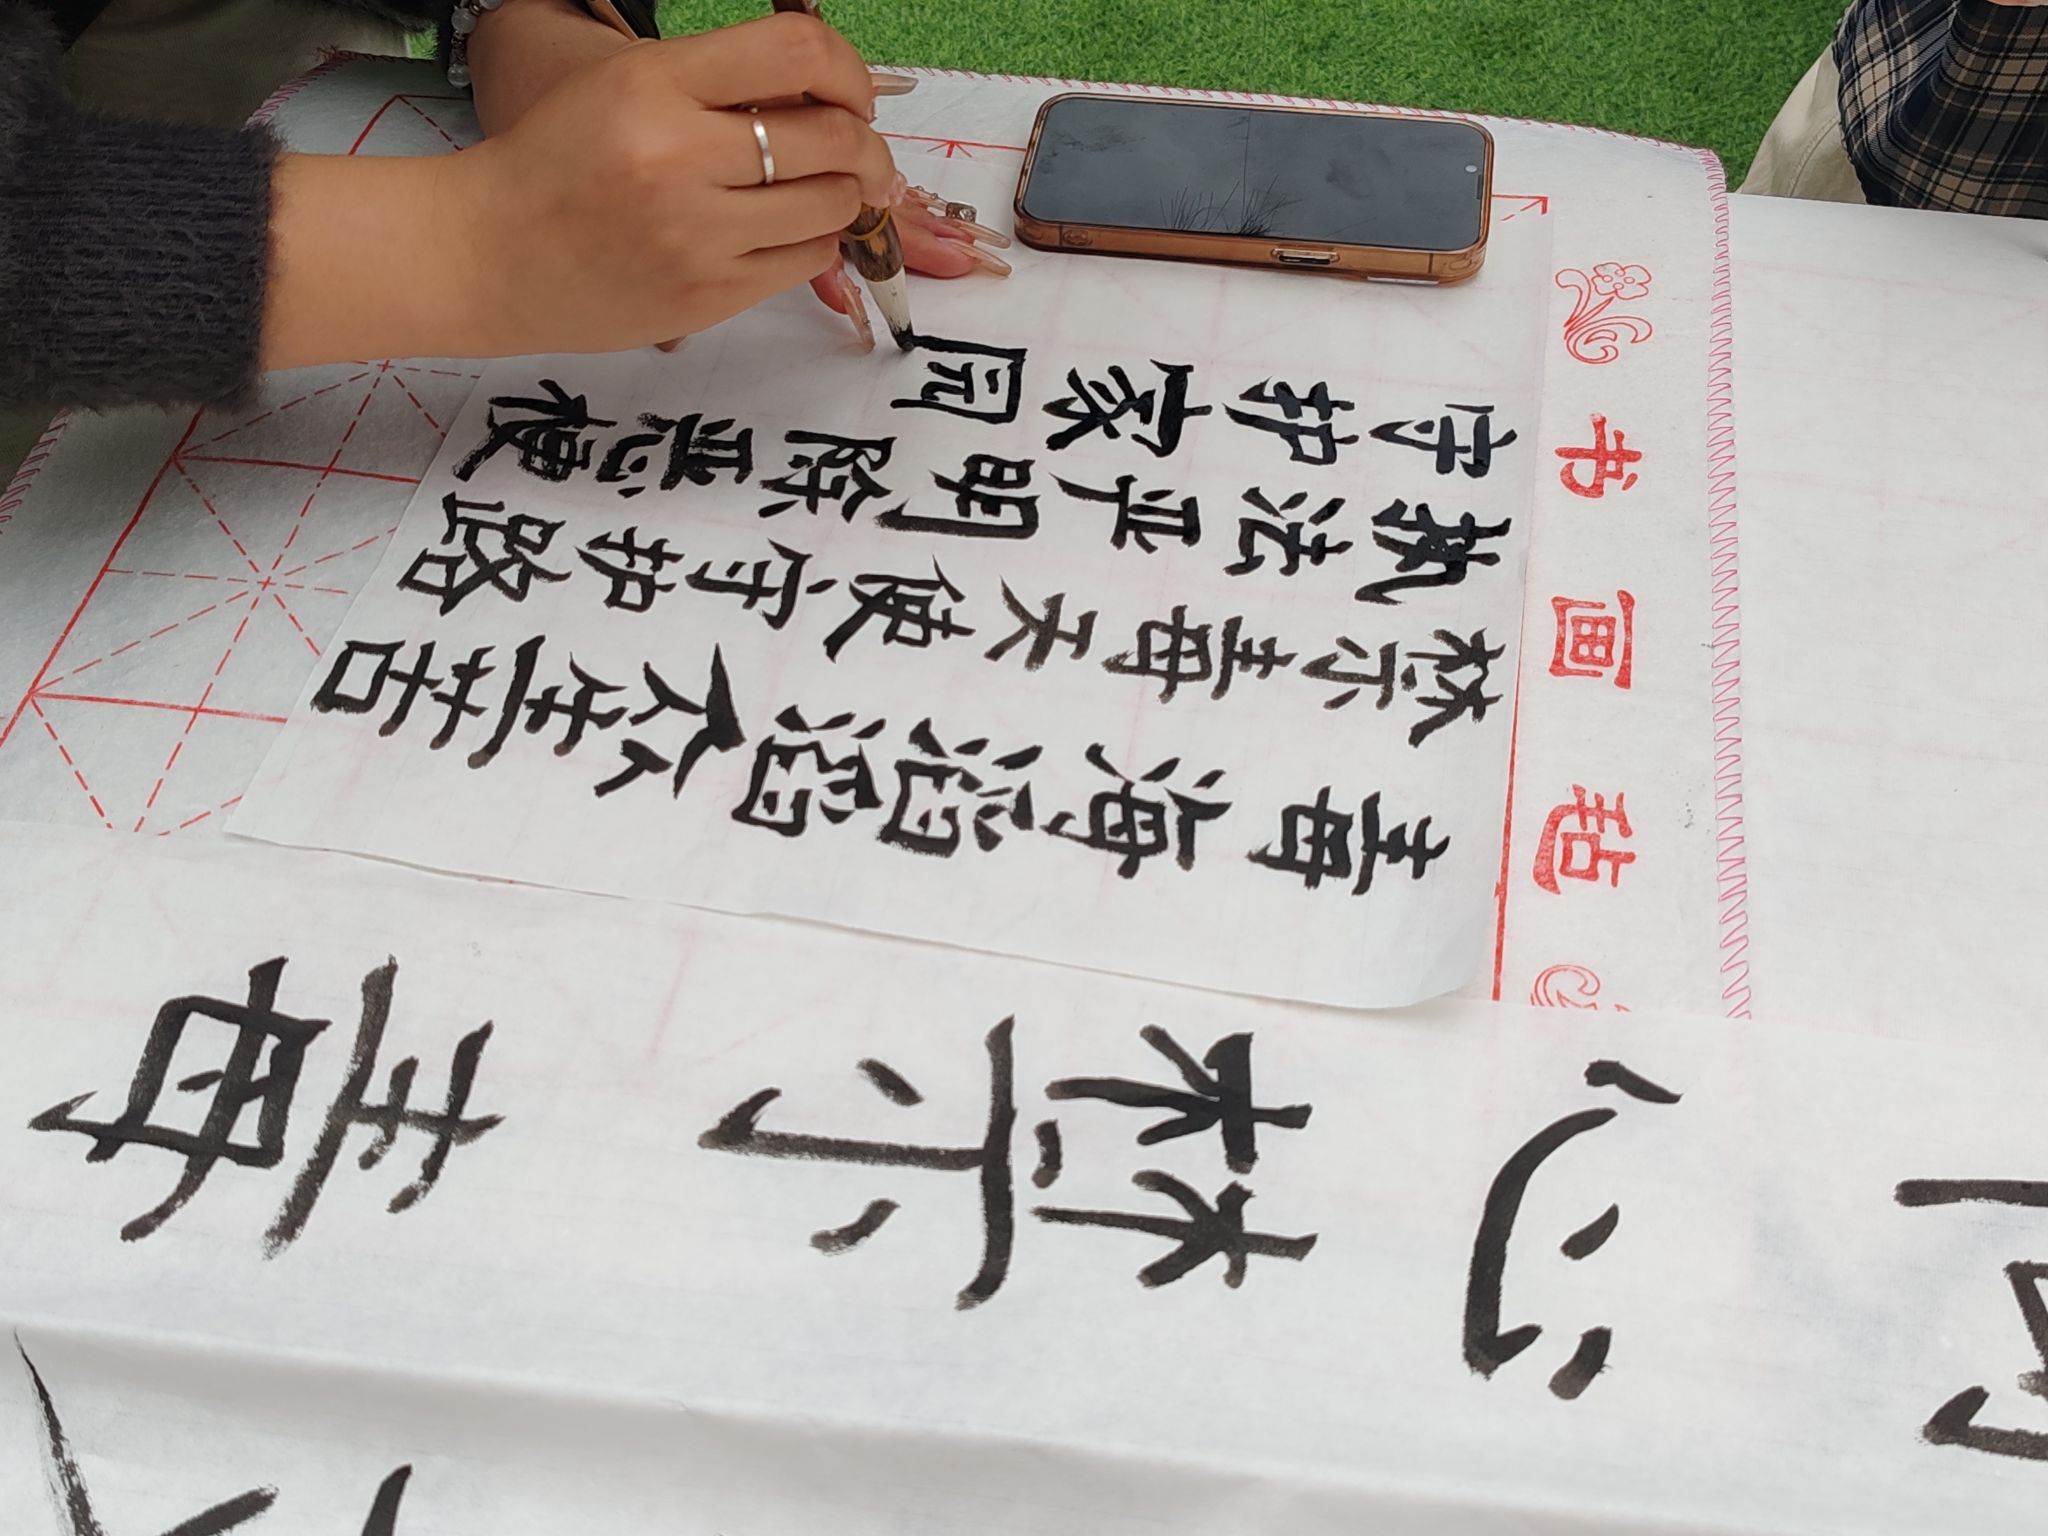 书画毡
毒海滔滔众生苦
禁毒天使守护路
执法严明除恶梗
守护家园
心禁毒